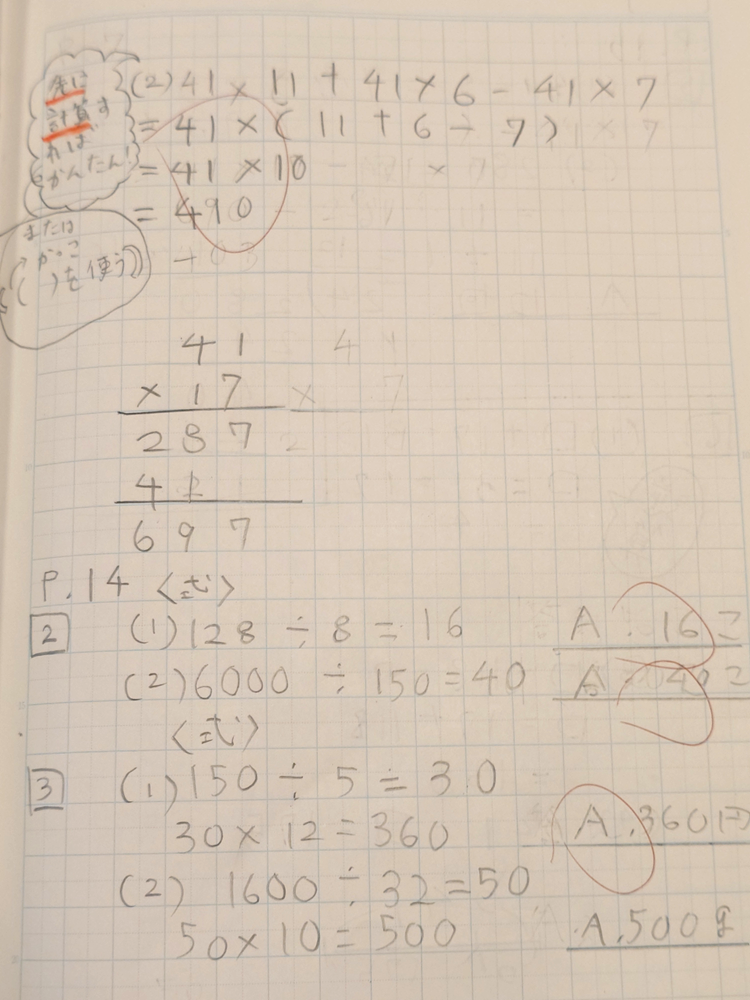 先に
計算す
れば
かんたん!
または
かっこ
( )を使う
(2) 41 × 11 + 41 × 6 - 41 × 7
= 41 × ( 11 + 6 - 7 )
= 41 × 10
= 490
41
× 17
287
41
697
P.14 〈式〉
2 (1) 128 ÷ 8 = 16 A. 16コ
(2) 6000 ÷ 150 = 40 A. 40コ
〈式〉
3 (1) 150 ÷ 5 = 30
30 × 12 = 360 A. 360円
(2) 1600 ÷ 32 = 50
50 × 10 = 500 A. 500g